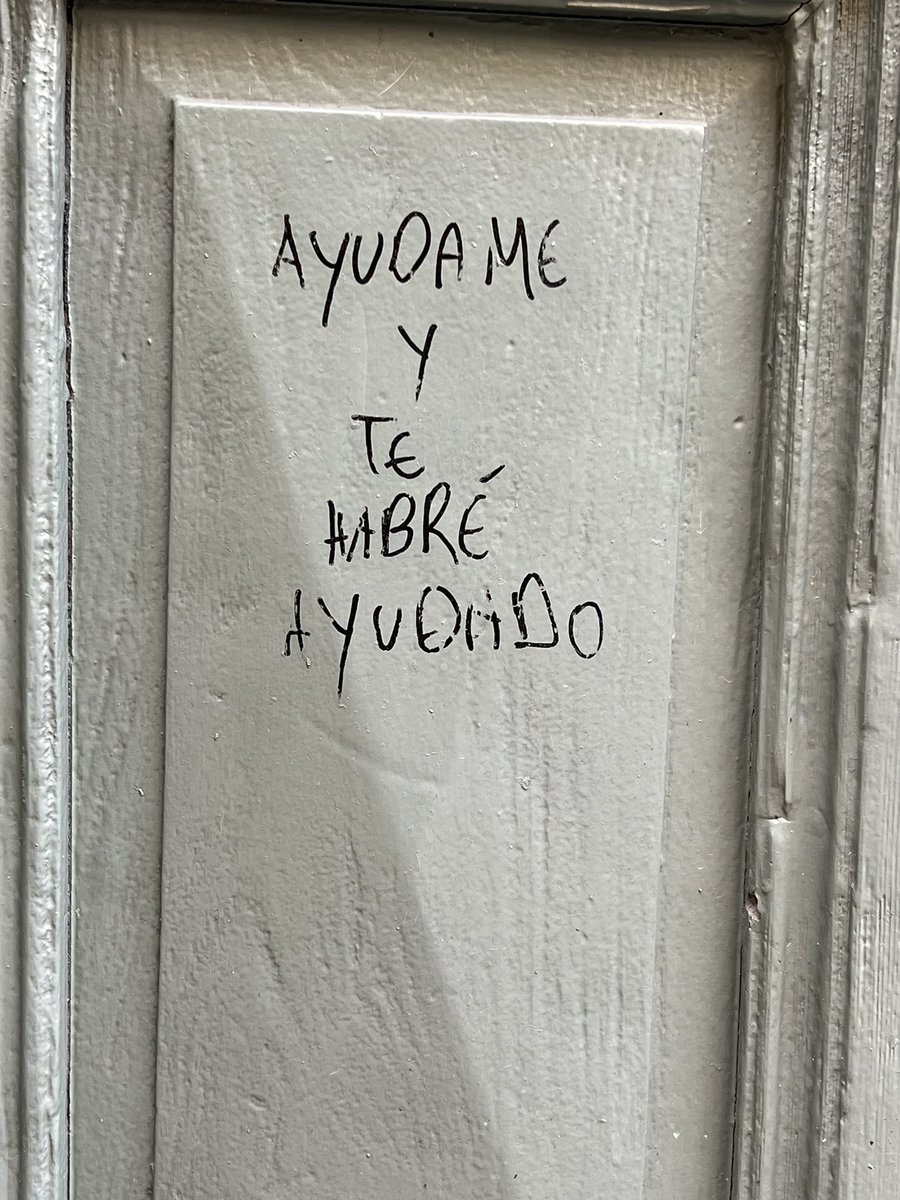 AYUDAME
Y
TE
HABRÉ
AYUDADO